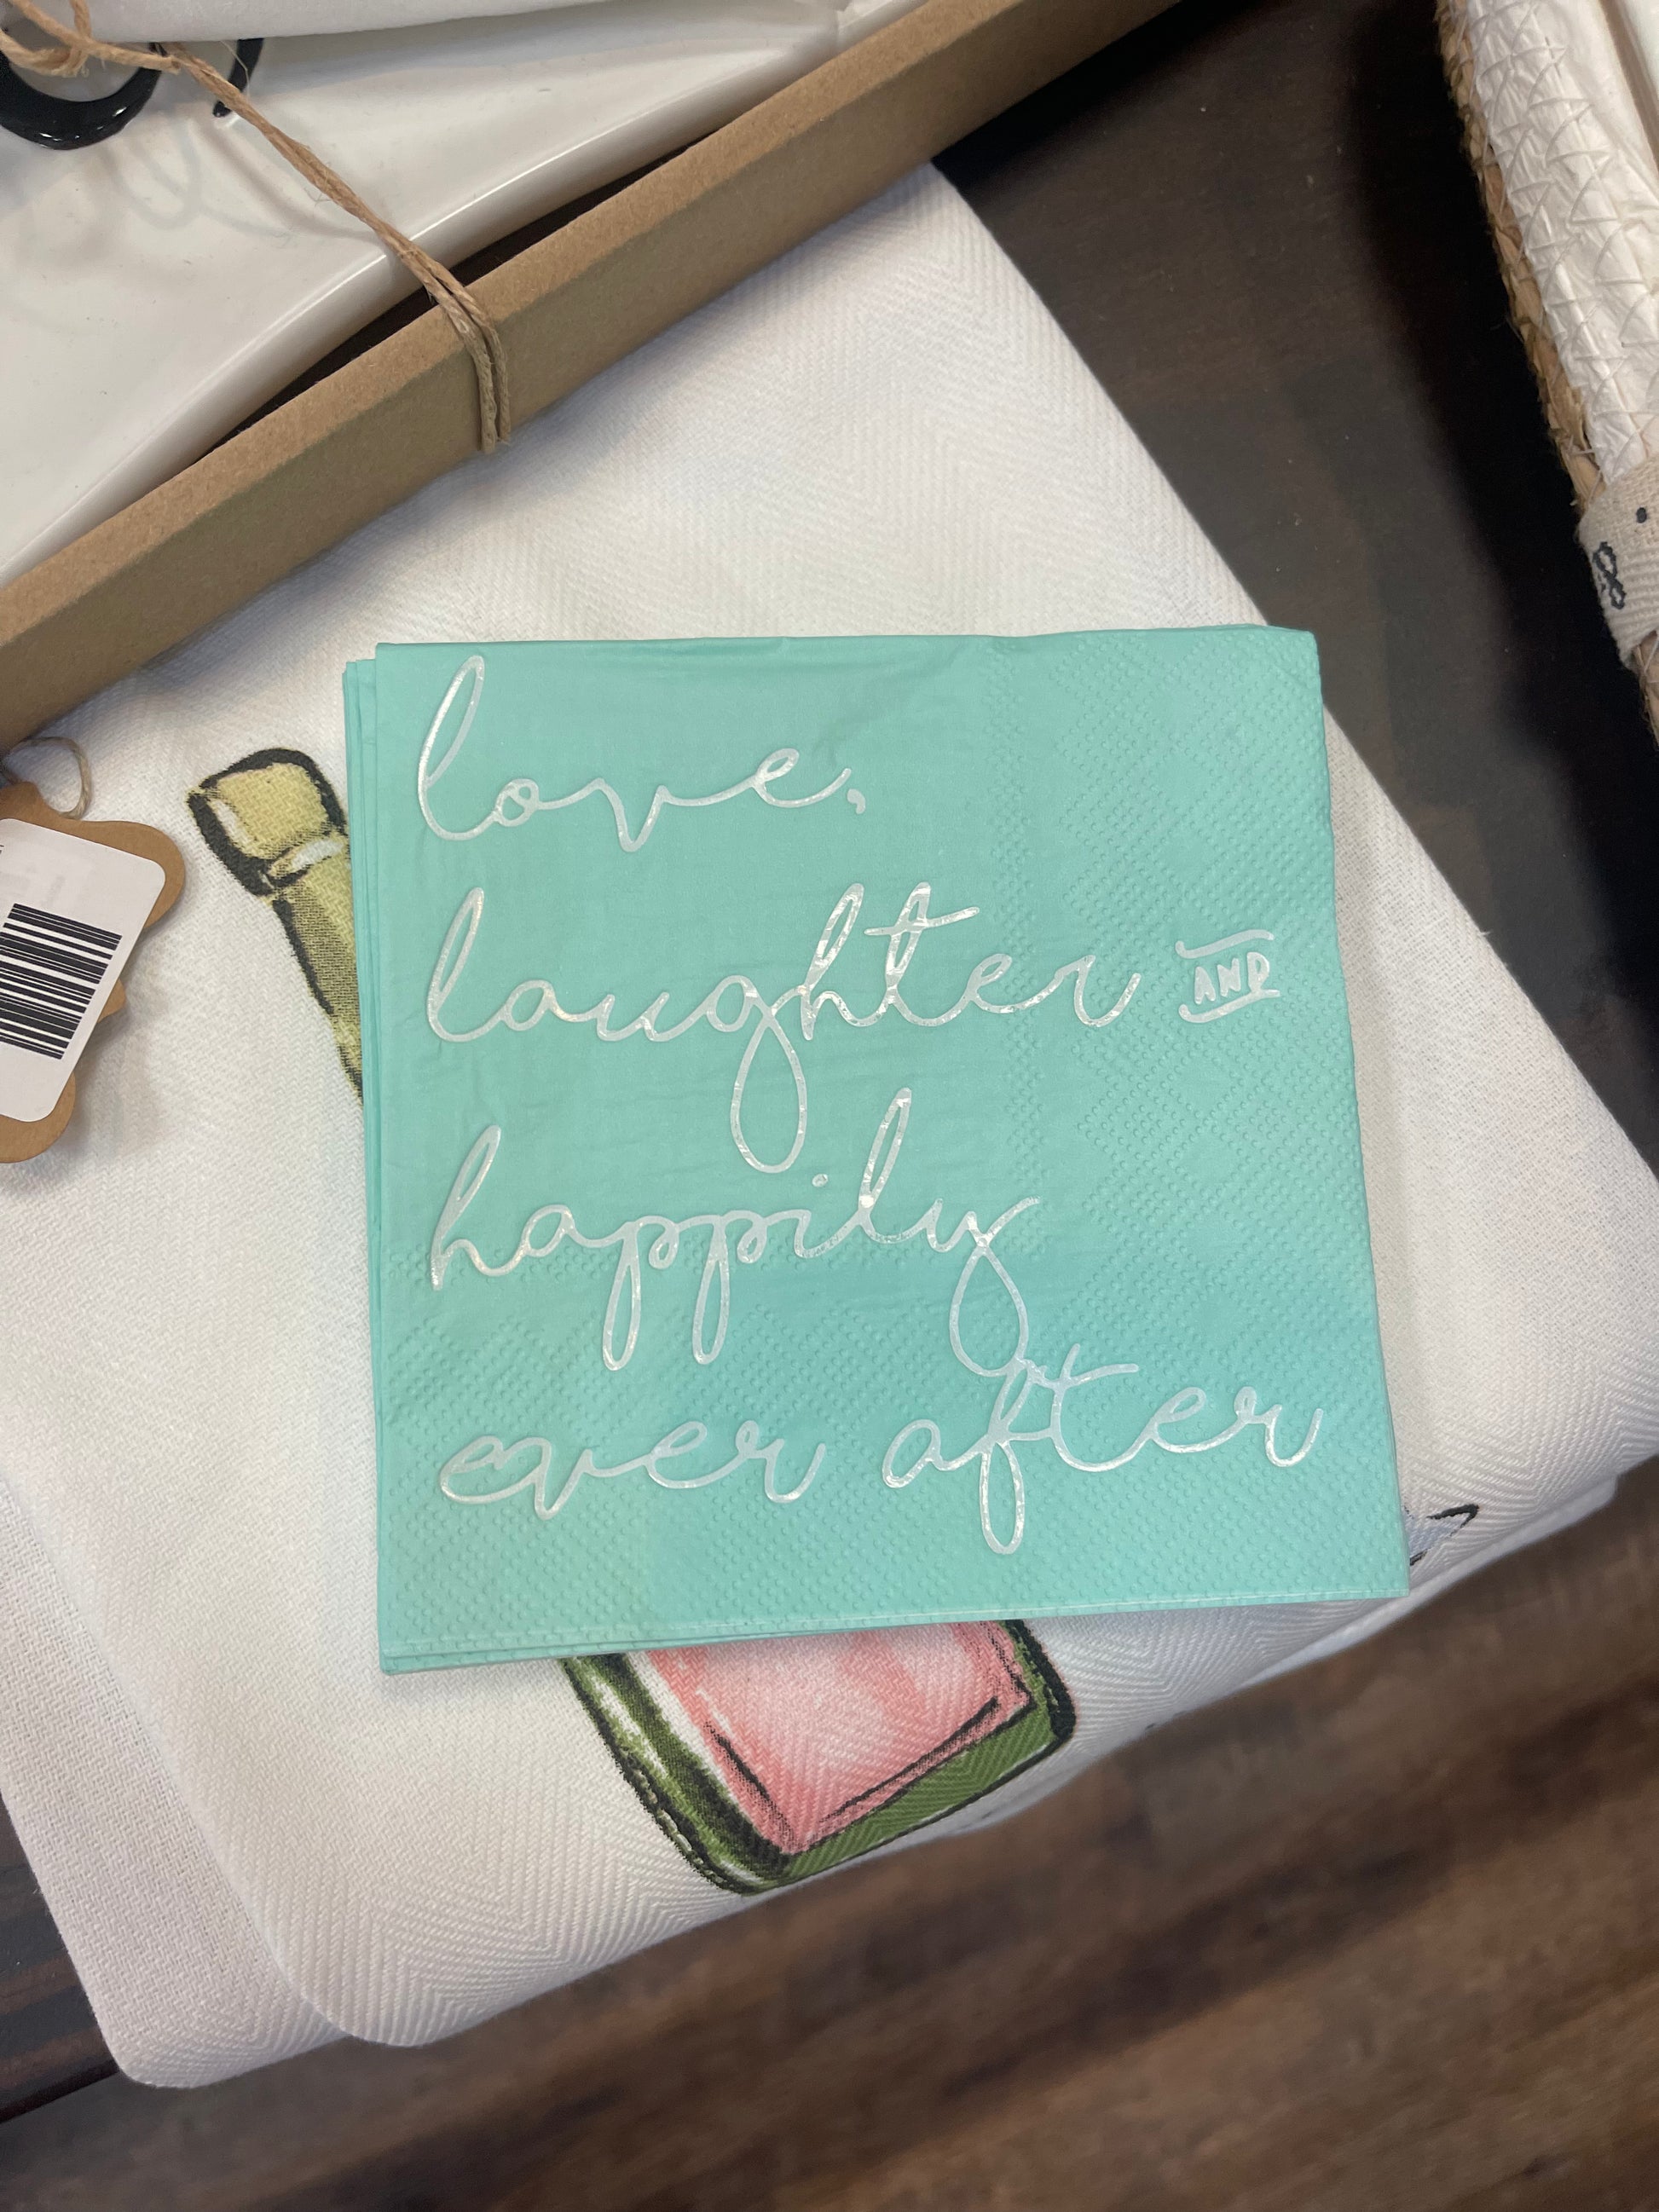 love,
laughter AND
happily
ever after